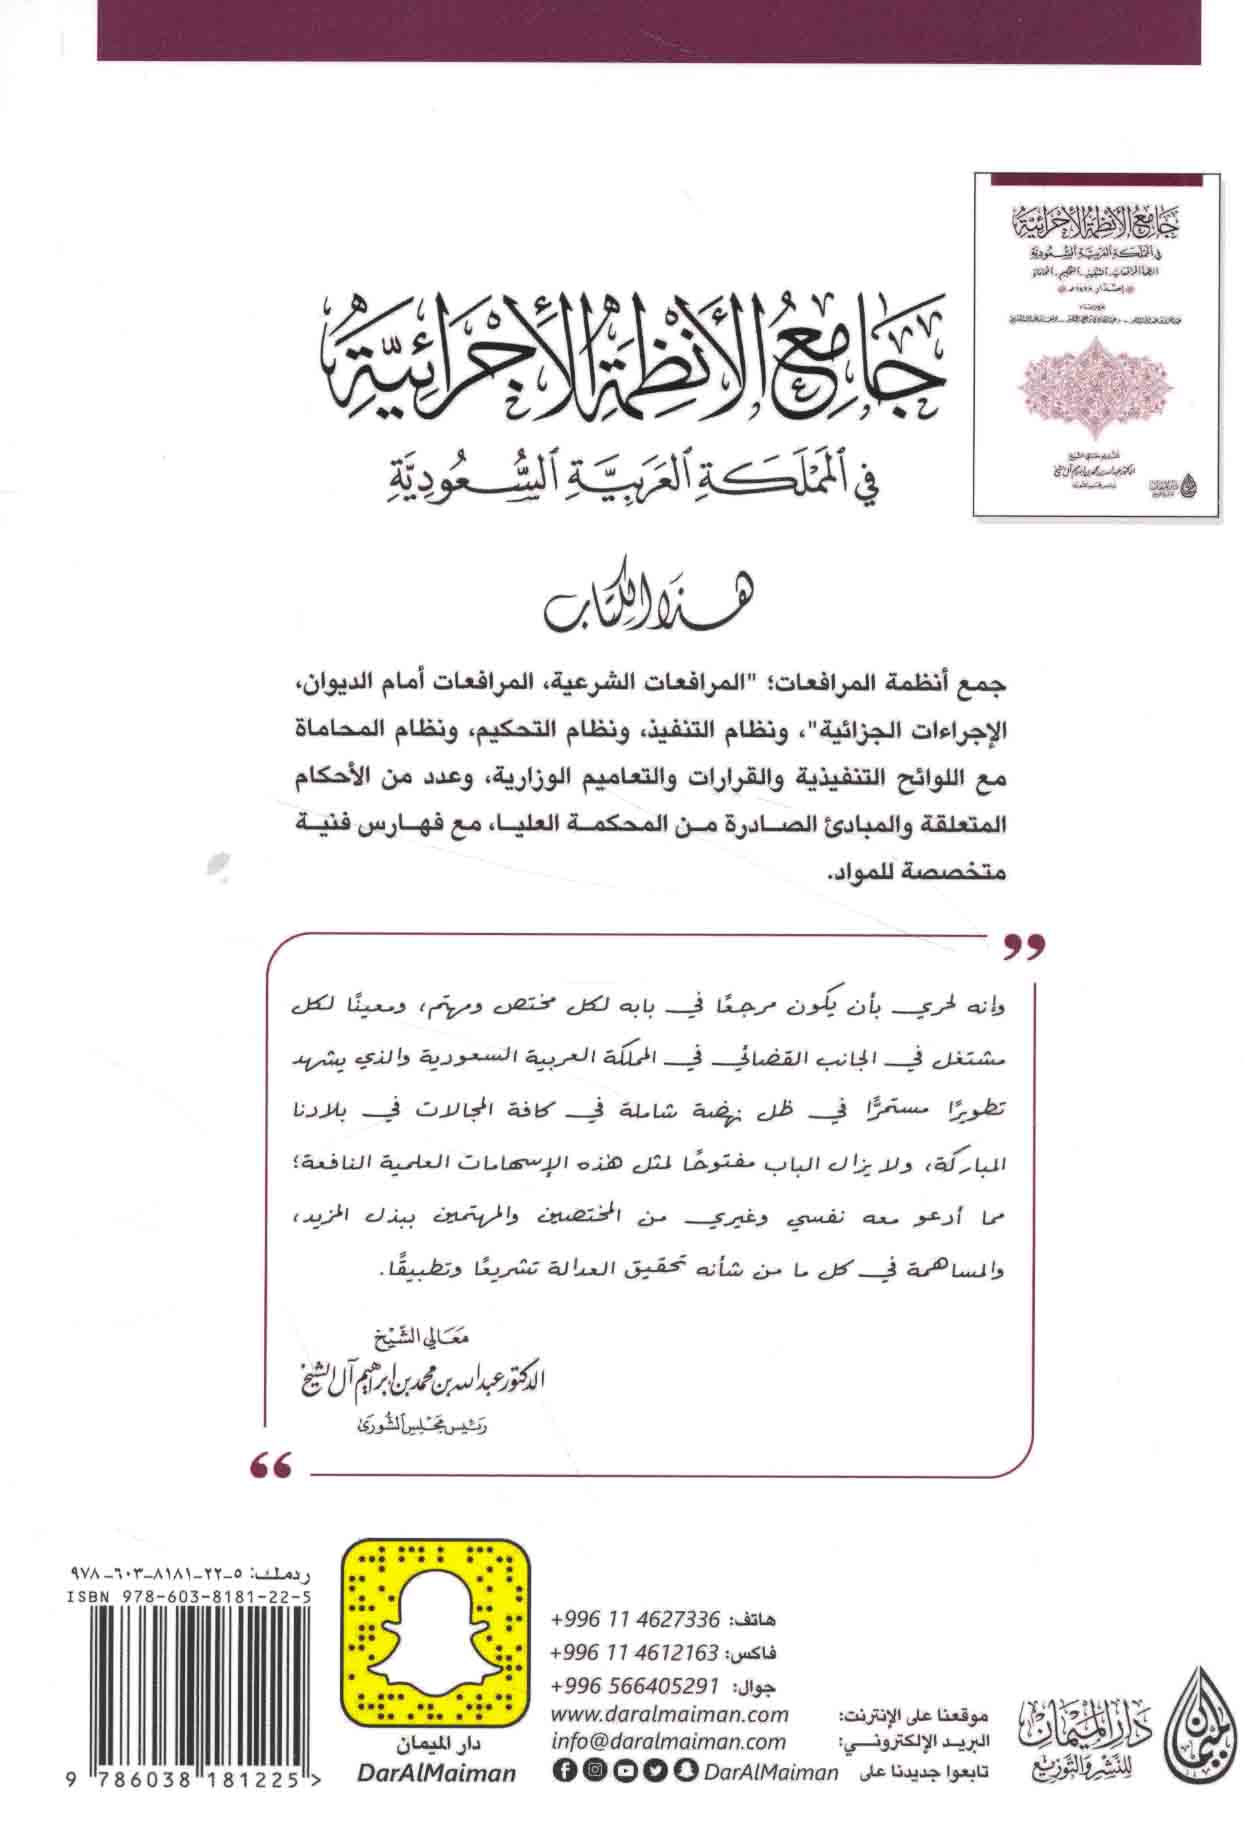 جامع الأنظمة الإجرائية
في المملكة العربية السعودية
جَامِعُ الأَنظِمَةِ الأَجْرَائِيَّةِ
في المَمْلَكَةِ العَرَبِيَّةِ السُّعُودِيَّةِ
هذا الكتاب
جمع أنظمة المرافعات؛ "المرافعات الشرعية، المرافعات أمام الديوان،
الإجراءات الجزائية"، ونظام التنفيذ، ونظام التحكيم، ونظام المحاماة
مع اللوائح التنفيذية والقرارات والتعاميم الوزارية، وعدد من الأحكام
المتعلقة والمبادئ الصادرة من المحكمة العليا، مع فهارس فنية
متخصصة للمواد.
وإنه لحري بأن يكون مرجعًا في بابه لكل مختص ومهتم، ومعينًا لكل
مشتغل في الجانب القضائي في المملكة العربية السعودية والذي يشهد
تطويرًا مستمرًّا في ظل نهضة شاملة في كافة المجالات في بلادنا
المباركة، ولا يزال الباب مفتوحًا لمثل هذه الإسهامات العلمية النافعة؛
مما أدعو معه نفسي وغيري من المختصين والمهتمين ببذل المزيد،
والمساهمة في كل ما من شأنه تحقيق العدالة تشريعًا وتطبيقًا.
معالي الشيخ
الدكتور عبدالله بن محمد بن إبراهيم آل الشيخ
رئيس مجلس الشورى
ردمك: ٥-٢٢-٨١٨١-٦٠٣-٩٧٨
ISBN 978-603-8181-22-5
9 786038 181225 >
دار الميمان
DarAlMaiman
هاتف: +996 11 4627336
فاكس: +996 11 4612163
جوال: +996 566405291
موقعنا على الإنترنت: www.daralmaiman.com
البريد الإلكتروني: info@daralmaiman.com
تابعوا جديدنا على DarAlMaiman
دار الميمان
للنشر والتوزيع
الميمان